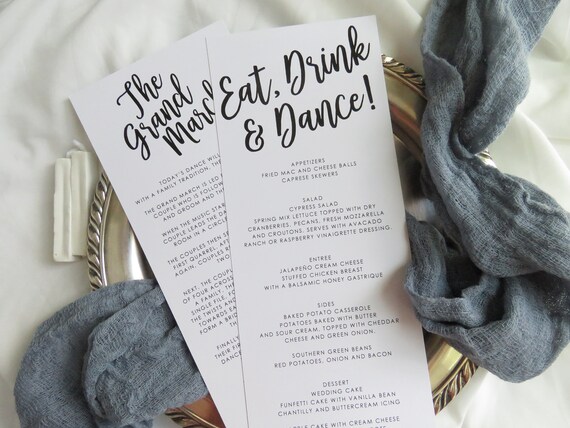 The
Grand
March
TODAY'S DANCE WILL
WITH A FAMILY TRADITION, THE
THE GRAND MARCH IS LED
COUPLE WHO IS FOLLOW
AND GROOM AND THE
WHEN THE MUSIC STAR
COUPLE LEADS THE DA
ROOM IN A CIRC
THE COUPLES THEN SE
FIRST QUARREL.
AGAIN, COUPLES R
NEXT, THE COUP
OF FOUR ACROSS
A FAMILY, THE
SINGLE FILE, FO
THE TWISTS AND
TOWARDS EA
FORM A BRID
FINALLY
THEIR FIRS
DANCE
Eat, Drink
& Dance!
APPETIZERS
FRIED MAC AND CHEESE BALLS
CAPRESE SKEWERS
SALAD
CYPRESS SALAD
SPRING MIX LETTUCE TOPPED WITH DRY
CRANBERRIES, PECANS, FRESH MOZZARELLA
AND CROUTONS. SERVES WITH AVOCADO
RANCH OR RASPBERRY VINAIGRETTE DRESSING.
ENTREE
JALAPEÑO CREAM CHEESE
STUFFED CHICKEN BREAST
WITH A BALSAMIC HONEY GASTRIQUE
SIDES
BAKED POTATO CASSEROLE
POTATOES BAKED WITH BUTTER
AND SOUR CREAM, TOPPED WITH CHEDDAR
CHEESE AND GREEN ONION.
SOUTHERN GREEN BEANS
RED POTATOES, ONION AND BACON
DESSERT
WEDDING CAKE
FUNFETTI CAKE WITH VANILLA BEAN
CHANTILLY AND BUTTERCREAM ICING
APPLE CAKE WITH CREAM CHEESE